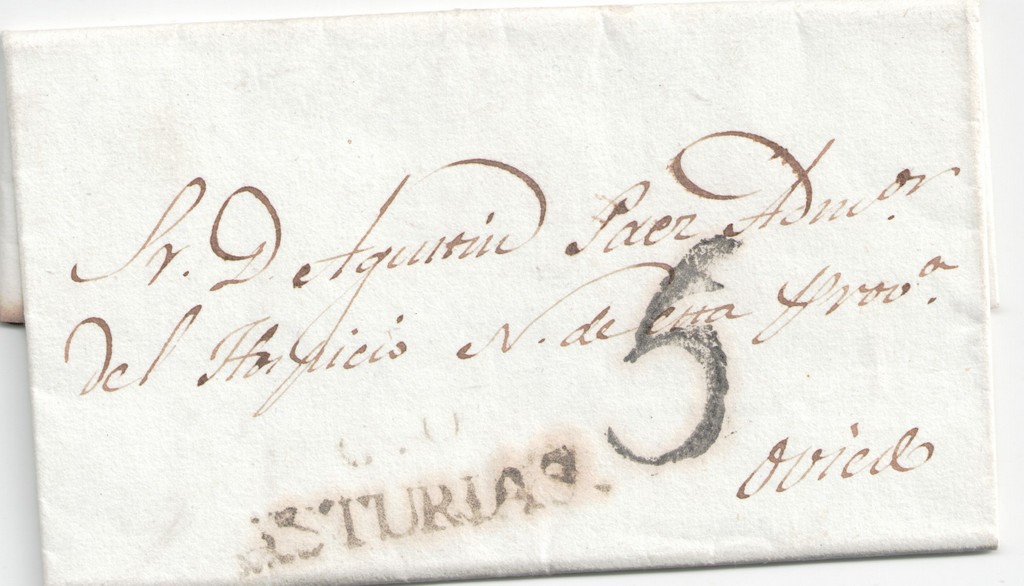 Sr. D. Agustin Saez Admor.
del Hospicio N. de esta Prova.
5
Oviedo
ASTURIAS.